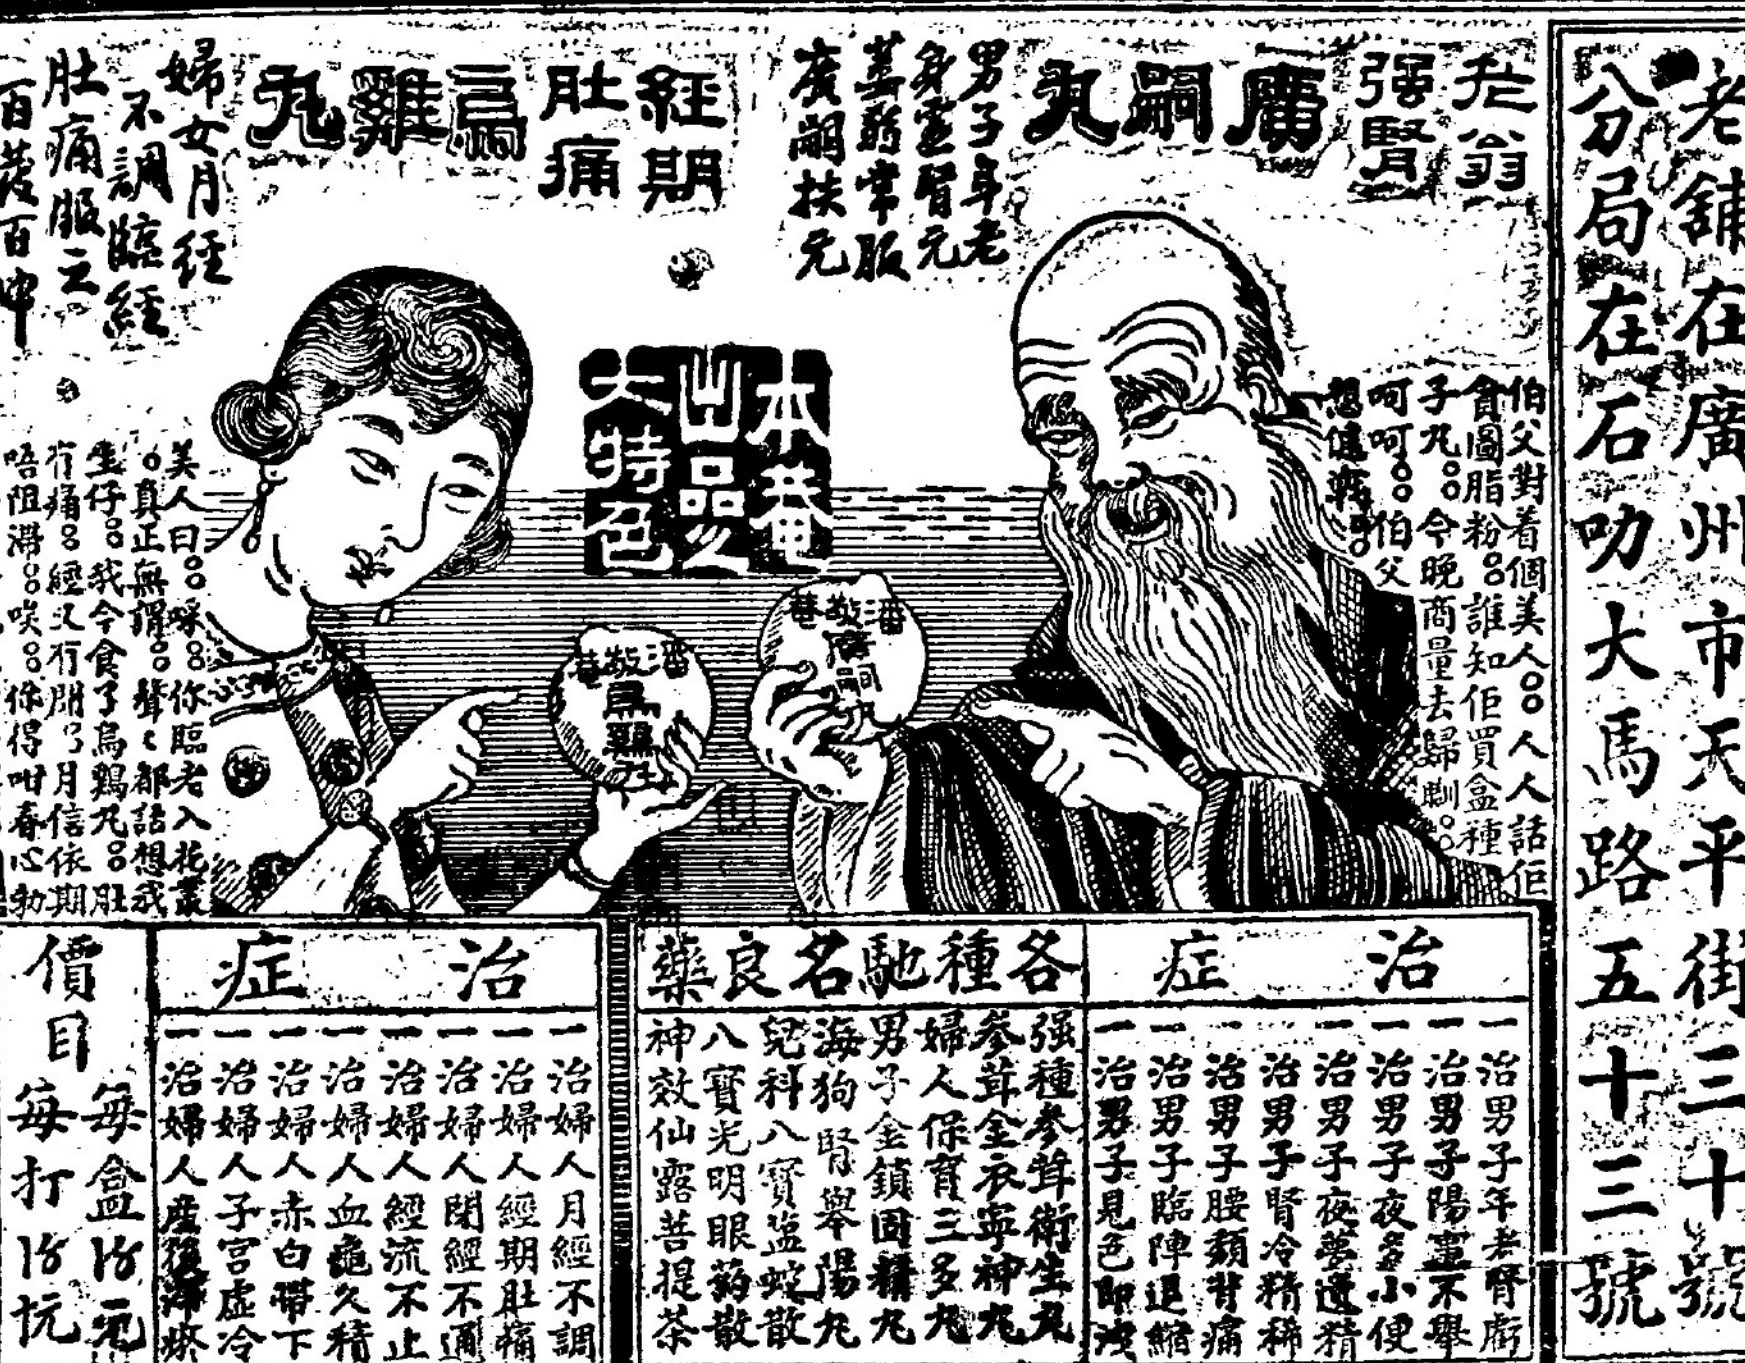 老舖在廣州市天平街三十號
分局在石叻大馬路五十三號
老翁
强腎
廣嗣丸
男子年老
身虛腎元
羸弱常服
廣嗣扶元
經期
肚痛
烏雞丸
婦女月經
不調臨經
肚痛服之
百發百中
本菴
出品之
大特色
伯父對着個美人○○人人話佢
貪圖脂粉○○誰知佢買盒種
子丸○○今晚商量去歸瞓○○
呵呵○○伯父
潘敬菴
廣嗣丸
潘敬菴
烏雞丸
美人曰○○睬○○你臨老入花叢
○真正無謂○○聲聲都話想我
生仔○○我今食了烏鷄丸○○肚
冇痛○○經又冇閉○○月信依期
唔阻滯○○唉○○你得咁春心勃
治症
一治男子年老腎虧
一治男子陽萎不舉
一治男子夜多小便
一治男子夜夢遺精
一治男子腎冷精稀
一治男子腰頹背痛
一治男子臨陣退縮
一治男子見色即洩
各種馳名良藥
强種參茸衛生丸
參茸金衣寧神丸
婦人保育三多丸
男子金鎖固精丸
海狗腎舉陽丸
兒科八寶鹽蛇散
八寶光明眼藥散
神效仙露菩提茶
治症
一治婦人月經不調
一治婦人經期肚痛
一治婦人閉經不通
一治婦人經流不止
一治婦人血虧久積
一治婦人赤白帶下
一治婦人子宮虛冷
一治婦人產後滯瘀
價目
每盒
每打